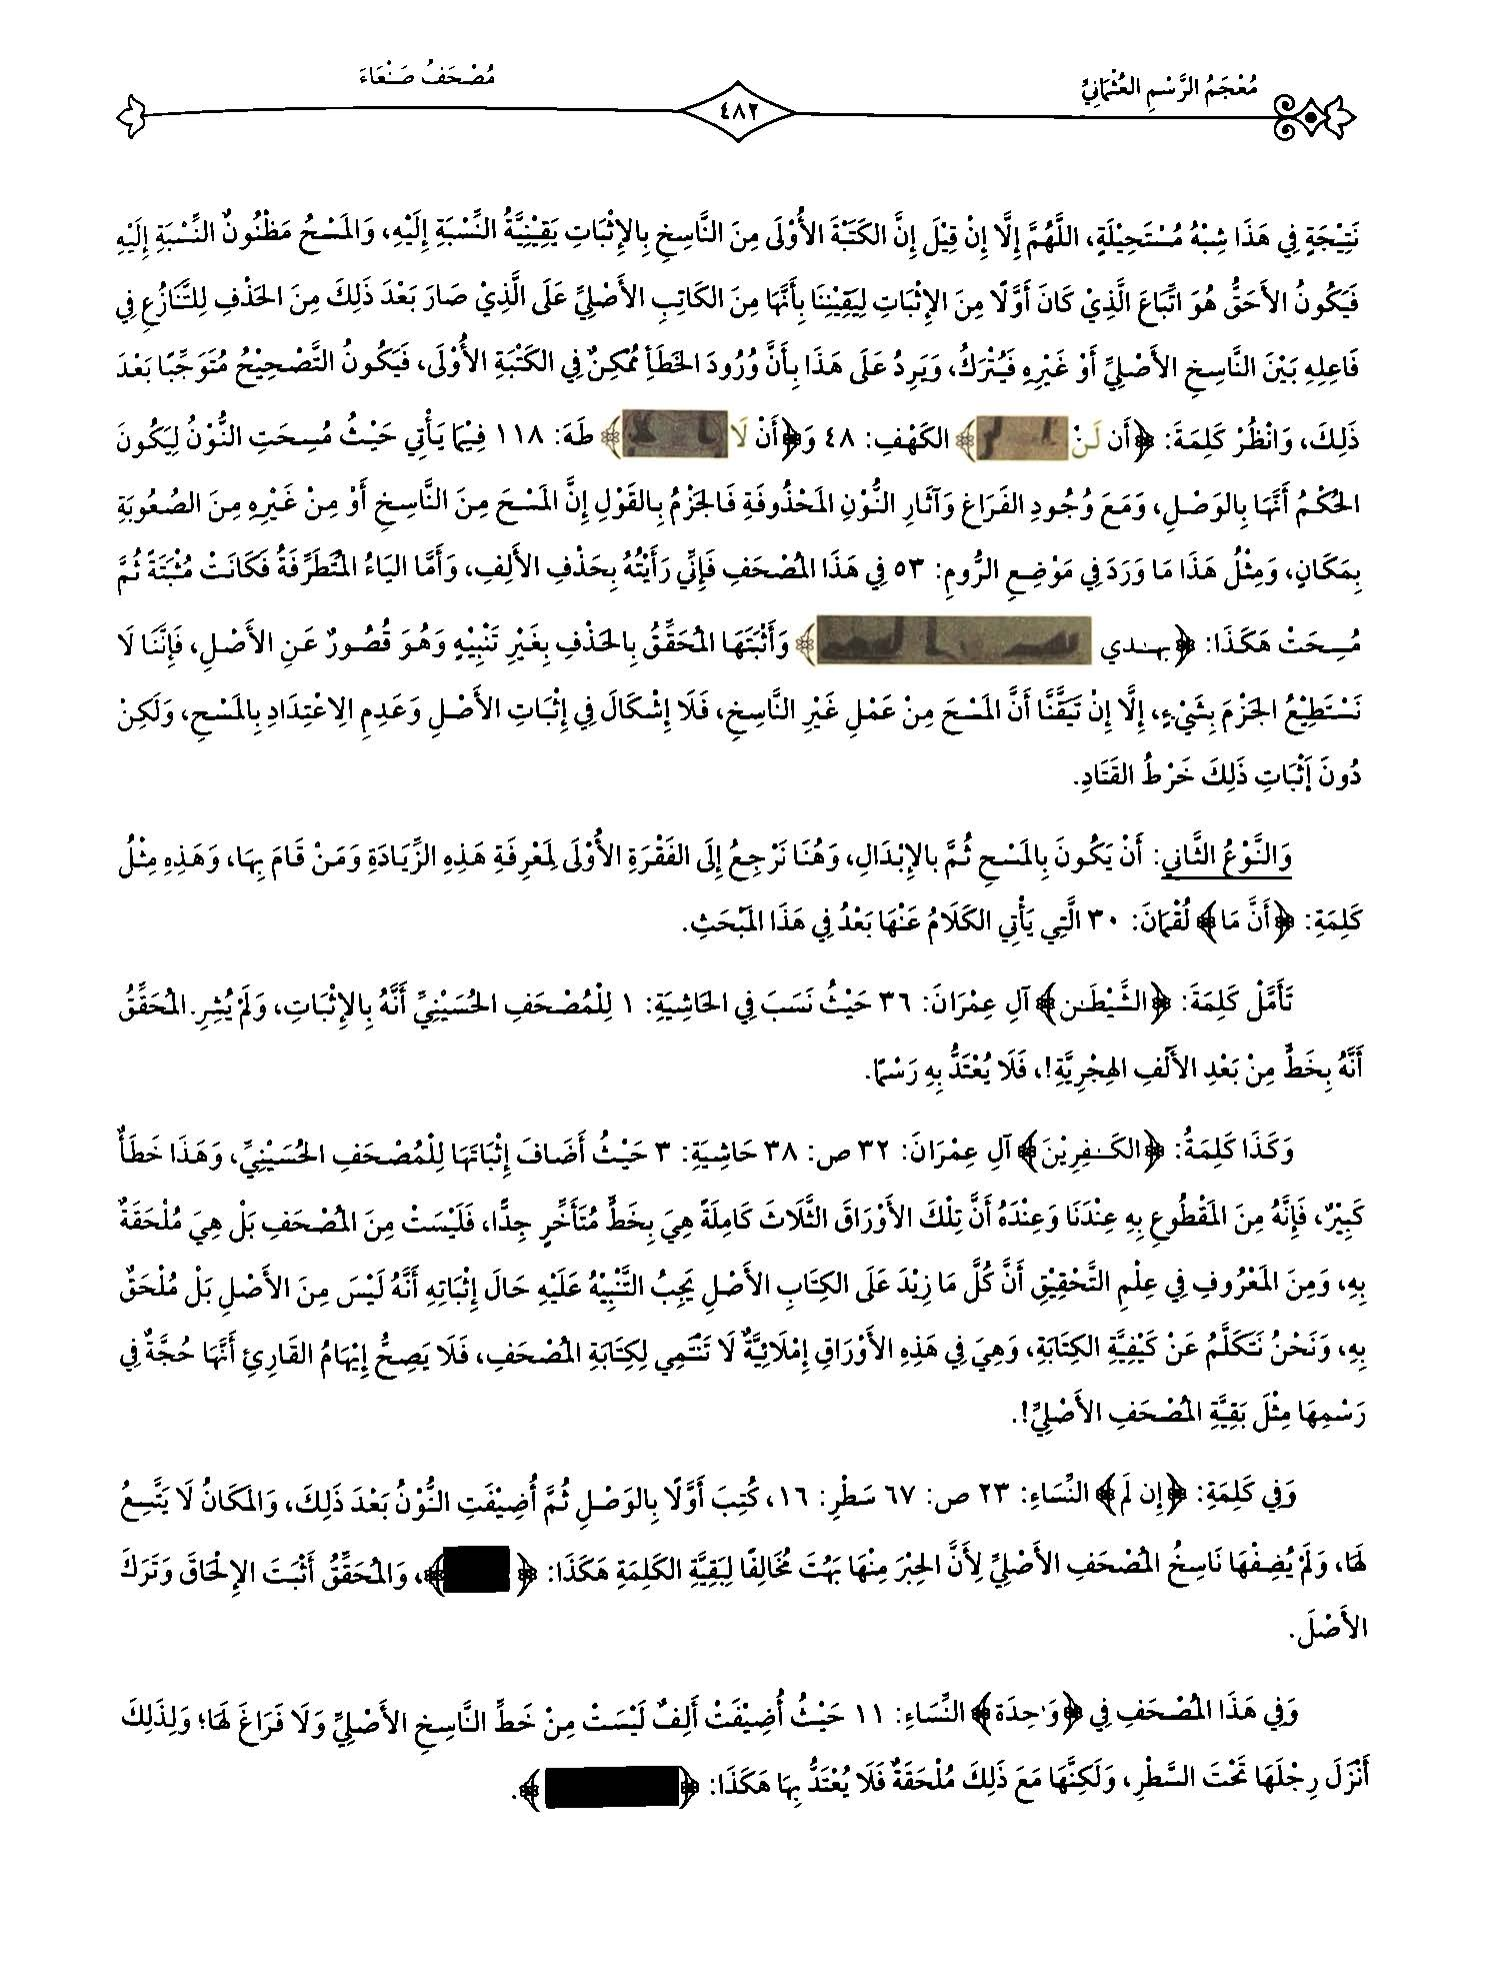 مُعْجَمُ الرَّسْمِ العُثْمَانِيِّ
٤٨٢
مُصْحَفُ صَنْعَاءَ
نَتِيْجَةٍ فِي هَذَا شِبْهُ مُسْتَحِيْلَةٍ، اللَّهُمَّ إِلَّا إِنْ قِيْلَ إِنَّ الكَتْبَةَ الأُوْلَى مِنَ النَّاسِخِ بِالإِثْبَاتِ يَقِيْنِيَّةُ النِّسْبَةِ إِلَيْهِ، وَالمَسْحُ مَظْنُونُ النِّسْبَةِ إِلَيْهِ
فَيَكُونُ الأَحَقُّ هُوَ اتِّبَاعَ الَّذِيْ كَانَ أَوَّلًا مِنَ الإِثْبَاتِ لِيَقِيْنِنَا بِأَنَّهَا مِنَ الكَاتِبِ الأَصْلِيِّ عَلَى الَّذِيْ صَارَ بَعْدَ ذَلِكَ مِنَ الحَذْفِ لِلتَّنَازُعِ فِي
فَاعِلِهِ بَيْنَ النَّاسِخِ الأَصْلِيِّ أَوْ غَيْرِهِ فَيُتْرَكُ، وَيَرِدُ عَلَى هَذَا بِأَنَّ وُرُودَ الخَطَأِ مُمْكِنٌ فِي الكَتْبَةِ الأُوْلَى، فَيَكُونُ التَّصْحِيْحُ مُتَوَجِّبًا بَعْدَ
ذَلِكَ، وَانْظُرْ كَلِمَةَ: ﴿أَن لَنْ ﴾ الكَهْفِ: ٤٨ وَ﴿أَنْ لَا ﴾ طَهَ: ١١٨ فِيْمَا يَأْتِي حَيْثُ مُسِحَتِ النُّوْنُ لِيَكُونَ
الحُكْمُ أَنَّهَا بِالوَصْلِ، وَمَعَ وُجُودِ الفَرَاغِ وَآثَارِ النُّوْنِ المَحْذُوفَةِ فَالجَزْمُ بِالقَوْلِ إِنَّ المَسْحَ مِنَ النَّاسِخِ أَوْ مِنْ غَيْرِهِ مِنَ الصُعُوبَةِ
بِمَكَانٍ، وَمِثْلُ هَذَا مَا وَرَدَ فِي مَوْضِعِ الرُّومِ: ٥٣ فِي هَذَا المُصْحَفِ فَإِنِّي رَأَيْتُهُ بِحَذْفِ الأَلِفِ، وَأَمَّا اليَاءُ المُتَطَرِّفَةُ فَكَانَتْ مُثْبَتَةً ثُمَّ
مُسِحَتْ هَكَذَا: ﴿بهـٰدي ﴾ وَأَثْبَتَهَا المُحَقِّقُ بِالحَذْفِ بِغَيْرِ تَنْبِيْهٍ وَهُوَ قُصُورٌ عَنِ الأَصْلِ، فَإِنَّنَا لَا
نَسْتَطِيْعُ الجَزْمَ بِشَيْءٍ، إِلَّا إِنْ تَيَقَّنَّا أَنَّ المَسْحَ مِنْ عَمَلِ غَيْرِ النَّاسِخِ، فَلَا إِشْكَالَ فِي إِثْبَاتِ الأَصْلِ وَعَدِمِ الِاعْتِدَادِ بِالمَسْحِ، وَلَكِنْ
دُونَ إَثْبَاتِ ذَلِكَ خَرْطُ القَتَادِ.
وَالنَّوْعُ الثَّانِي: أَنْ يَكُونَ بِالمَسْحِ ثُمَّ بالإِبْدَالِ، وَهُنَا نَرْجِعُ إِلَى الفَقْرَةِ الأُوْلَى لِمَعْرِفَةِ هَذِهِ الزِّيَادَةِ وَمَنْ قَامَ بِهَا، وَهَذِهِ مِثْلُ
كَلِمَةِ: ﴿أَنَّ مَا﴾ لُقْمَانَ: ٣٠ الَّتِي يَأْتِي الكَلَامُ عَنْهَا بَعْدُ فِي هَذَا المَبْحَثِ.
تَأَمَّلْ كَلِمَةَ: ﴿الشَّيْطَـٰن﴾ آلِ عِمْرَانَ: ٣٦ حَيْثُ نَسَبَ فِي الحَاشِيَةِ: ١ لِلْمُصْحَفِ الحُسَيْنِيِّ أَنَّهُ بِالإِثْبَاتِ، وَلَمْ يُشِرِ المُحَقِّقُ
أَنَّهُ بِخَطٍّ مِنْ بَعْدِ الأَلْفِ الهِجْرِيَّةِ!، فَلَا يُعْتَدُّ بِهِ رَسْمًا.
وَكَذَا كَلِمَةُ: ﴿الكَـٰفِرِيْنَ﴾ آلِ عِمْرَانَ: ٣٢ ص: ٣٨ حَاشِيَةِ: ٣ حَيْثُ أَضَافَ إِثْبَاتَهَا لِلْمُصْحَفِ الحُسَيْنِيِّ، وَهَذَا خَطَأٌ
كَبِيْرٌ، فَإِنَّهُ مِنَ المَقْطُوعِ بِهِ عِنْدَنَا وَعِنْدَهُ أَنَّ تِلْكَ الأَوْرَاقَ الثَّلَاثَ كَامِلَةً هِيَ بِخَطٍّ مُتَأَخِّرٍ جِدًّا، فَلَيْسَتْ مِنَ المُصْحَفِ بَلْ هِيَ مُلْحَقَةٌ
بِهِ، وَمِنَ المَعْرُوفِ فِي عِلْمِ التَّحْقِيْقِ أَنَّ كُلَّ مَا زِيْدَ عَلَى الكِتَابِ الأَصْلِ يَجِبُ التَّنْبِيْهُ عَلَيْهِ حَالَ إِثْبَاتِهِ أَنَّهُ لَيْسَ مِنَ الأَصْلِ بَلْ مُلْحَقٌ
بِهِ، وَنَحْنُ نَتَكَلَّمُ عَنْ كَيْفِيَّةِ الكِتَابَةِ، وَهِيَ فِي هَذِهِ الأَوْرَاقِ إِمْلَائِيَّةٌ لَا تَنْتَمِي لِكِتَابَةِ المُصْحَفِ، فَلَا يَصِحُّ إِيْهَامُ القَارِئِ أَنَّهَا حُجَّةٌ فِي
رَسْمِهَا مِثْلَ بَقِيَّةِ المُصْحَفِ الأَصْلِيِّ!.
وَفِي كَلِمَةِ: ﴿إِن لَم﴾ النِّسَاءِ: ٢٣ ص: ٦٧ سَطْرِ: ١٦، كُتِبَ أَوَّلًا بِالوَصْلِ ثُمَّ أُضِيْفَتِ النُّوْنُ بَعْدَ ذَلِكَ، وَالمَكَانُ لَا يَتَّسِعُ
لَهَا، وَلَمْ يُضِفْهَا نَاسِخُ المُصْحَفِ الأَصْلِيِّ لِأَنَّ الحِبْرَ مِنْهَا بَهُتَ مُخَالِفًا لِبَقِيَّةِ الكَلِمَةِ هَكَذَا: ﴿ ﴾، وَالمُحَقِّقُ أَثْبَتَ الإِلْحَاقَ وَتَرَكَ
الأَصْلَ.
وَفِي هَذَا المُصْحَفِ فِي ﴿وَٰحِدَة﴾ النِّسَاءِ: ١١ حَيْثُ أُضِيْفَتْ أَلِفٌ لَيْسَتْ مِنْ خَطِّ النَّاسِخِ الأَصْلِيِّ وَلَا فَرَاغَ لَهَا؛ وَلِذَلِكَ
أَنْزَلَ رِجْلَهَا تَحْتَ السَّطْرِ، وَلَكِنَّهَا مَعَ ذَلِكَ مُلْحَقَةٌ فَلَا يُعْتَدُّ بِهَا هَكَذَا: ﴿ ﴾.